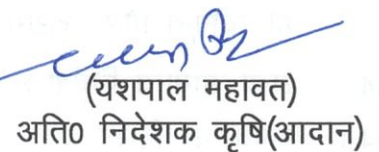 (यशपाल महावत)
अति0 निदेशक कृषि(आदान)